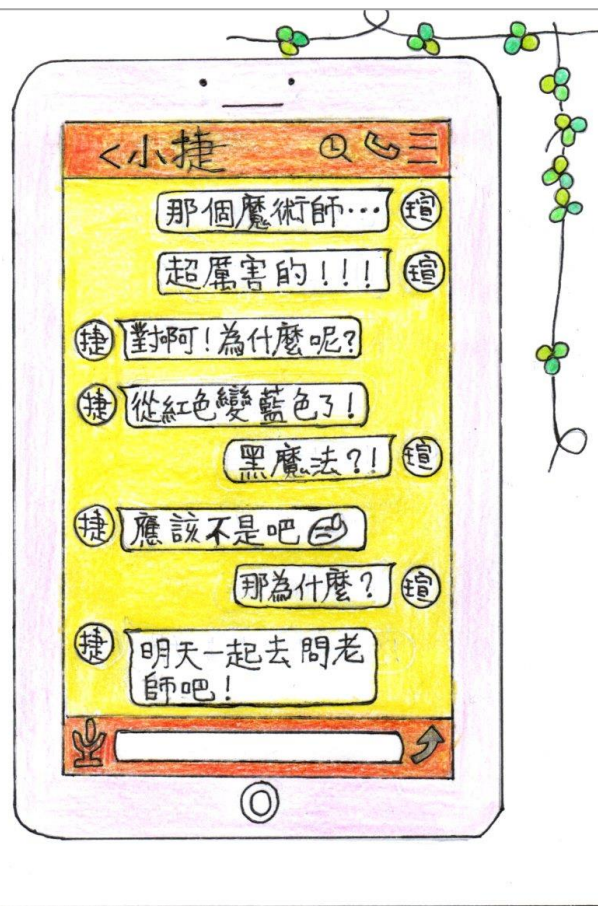 <小捷
那個魔術師…
瑄
超厲害的!!!
瑄
捷
對啊!為什麼呢?
捷
從紅色變藍色了!
黑魔法?!
瑄
捷
應該不是吧
那為什麼?
瑄
捷
明天一起去問老
師吧!